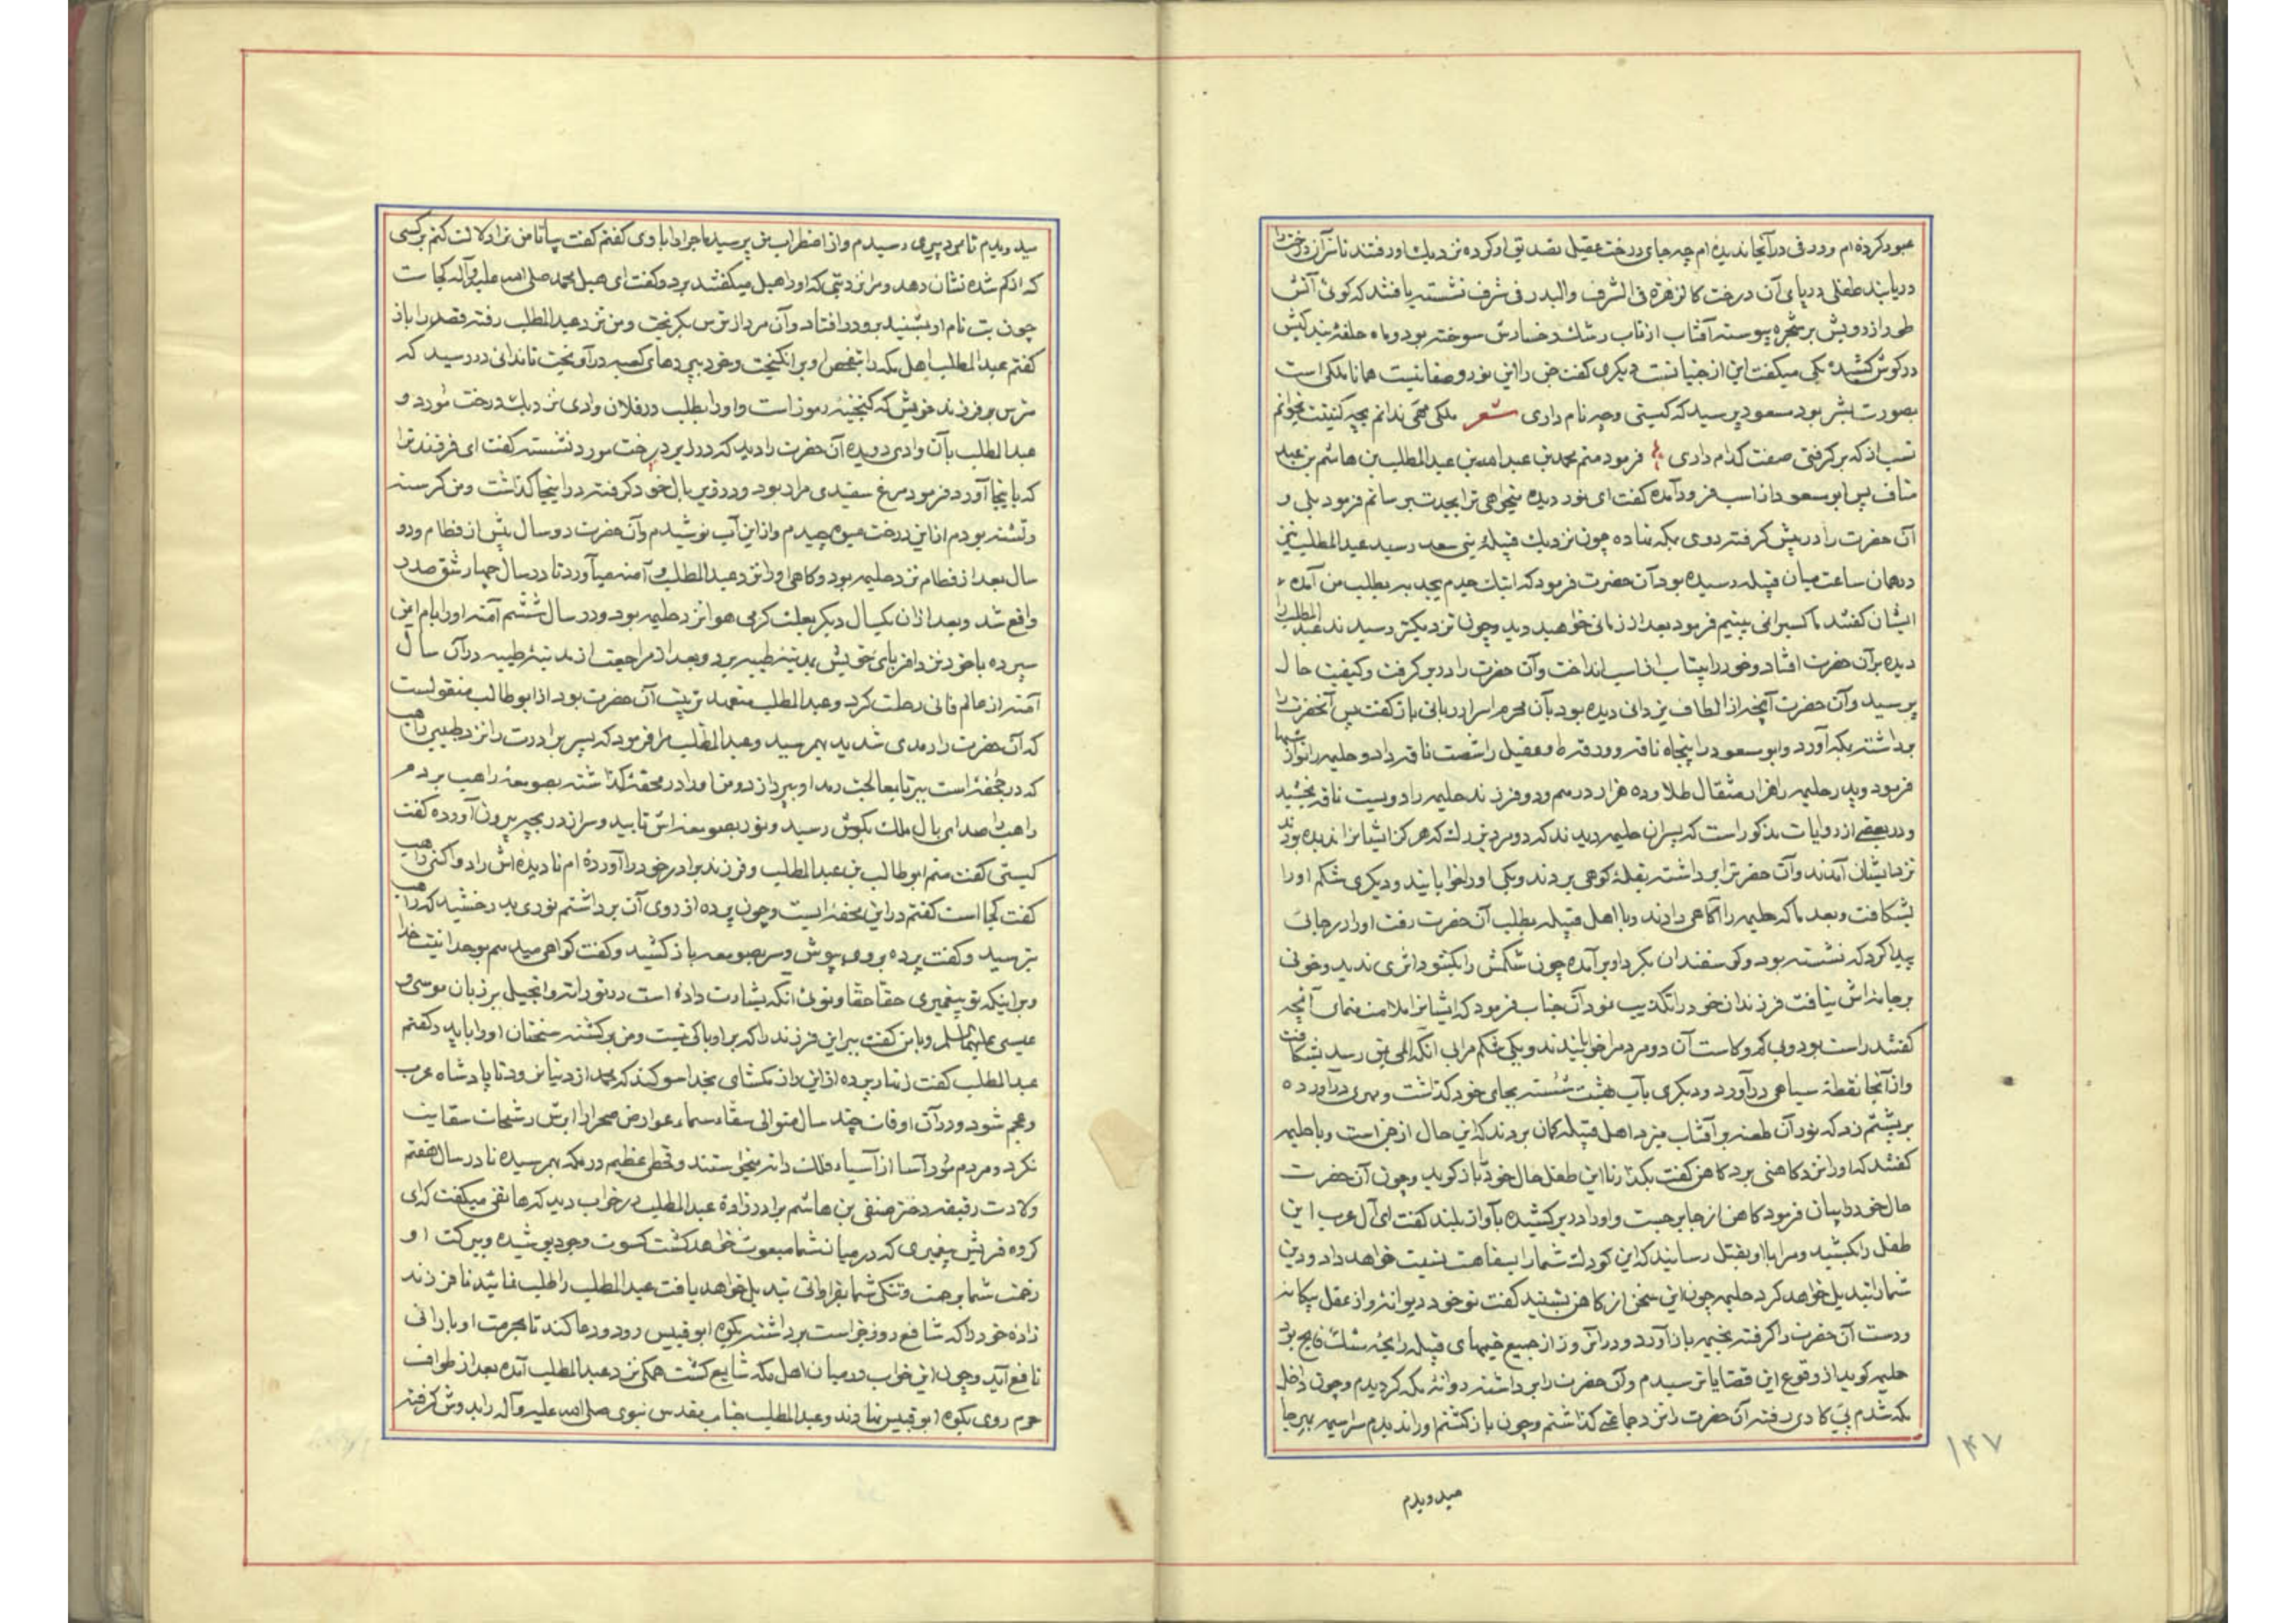 عبور کرده‌ام و روزی در آنجا ندیده‌ام چه جای درخت عقیل تصدیق او کرده نزدیک آوردند تا سر آن درخت را
دریابند طفلی در پای آن درخت کالزهرة فی الشرف والبدر فی شرف نشسته یافتند که گوئی آتش
طور از رویش بر شجره پیوسته آفتاب از تاب رشک رخسارش سوخته بود و ماه حلقه بندگیش
در گوش کشیده یکی میگفت این از جنیانست دیگری گفت جن را این نور و صفا نیست همانا ملکی است
بصورت بشر بود مسعود پرسید که کیستی و چه نام داری شعر ملکی مهی ندانم بچه کنیتت بخوانم
نسب از که بر گرفتی صفت کدام داری فرمود منم محمد بن عبدالله بن عبدالمطلب بن هاشم بن عبد
مناف پس ابو سعود از اسب فرود آمده گفت ای نور دیده میخواهی ترا بجدت برسانم فرمود بلی و
آن حضرت را در پیش گرفته روی بمکه نهاده چون نزدیک قبیله بنی سعد رسید عبدالمطلب نیز
در همان ساعت میان قبیله رسیده بود آن حضرت فرمود که اینک جدم بطلب من آمده
ایشان گفتند ما کسی را نمی بینیم فرمود بعد از زمانی خواهید دید و چون نزدیکتر رسیدند عبدالمطلب را
دیده بر آن حضرت افتاد و خود را بیتاب از اسب انداخت و آن حضرت را در بر گرفت و کیفیت حال
پرسید و آن حضرت آنچه از الطاف یزدانی دیده بود بآن محرم اسرار ربانی باز گفت پس آنحضرت را
برداشته بمکه آورد و ابو سعود را پنجاه ناقه و عقیل را شصت ناقه داد و حلیمه را نوازشها
فرمود و پدر حلیمه را هزار مثقال طلا و ده هزار درهم و دو فرزند حلیمه را دویست ناقه بخشید
و در بعضی از روایات مذکور است که پسران حلیمه دیدند که دو مرد بزرگ که هرگز ایشانرا ندیده بودند
نزد ایشان آمدند و آن حضرت را برداشته بقله کوهی بردند و یکی او را خوابانید و دیگری شکم او را
بشکافت و بعد ما که حلیمه را آگاهی دادند و با اهل قبیله بطلب آن حضرت رفت او را در جائی
پیدا کرد که نشسته بود و گوسفندان بگرد او بر آمده چون شکمش را بگشود اثری ندید و خونی
بر جامه‌اش نیافت فرزندان خود را تکذیب نمود آن جناب فرمود که ایشانرا ملامت منمای آنچه
گفتند راست بود و بی کم و کاست آن دو مرد مرا خوابانیدند و یکی شکم مرا بی آنکه المی بمن رسد بشکافت
و از آنجا نقطه سیاهی در آورد و دیگری بآب بهشت شسته بجای خود گذاشت و مهری در آورده
بر پشتم زد که نور آن طعنه بر آفتاب میزد اهل قبیله گمان بردند که این حال از جن است و با حلیمه
گفتند که او را نزد کاهنی برد کاهن گفت بگذار تا این طفل حال خود باز گوید و چون آن حضرت
حال خود را بیان فرمود کاهن از جا بر جست و او را در بر کشیده بآواز بلند گفت ای آل عرب این
طفل را بکشید و مرا با او بقتل رسانید که این کودک شما را بسفاهت نسبت خواهد داد و دین
شما را تبدیل خواهد کرد حلیمه چون این سخن از کاهن بشنید گفت تو خود دیوانه و از عقل بیگانه
و دست آن حضرت را گرفته بخیمه باز آورد و در آن روز از جمیع خیمهای قبیله رایحه مشک فایح بود
حلیمه گوید از وقوع این قضایا ترسیدم و آن حضرت را برداشته روانه مکه گردیدم و چون داخل
مکه شدم پی کاری رفته آن حضرت را نزد جماعتی گذاشتم و چون باز گشتم او را ندیدم سراسیمه بهرجا
میدویدم
۱۴۷
میدویدم تا بمرد پیری رسیدم و از اضطراب من پرسید ماجرا را با وی گفتم گفت بیا تا من ترا دلالت کنم بر کسی
که از گم شده نشان دهد و مرا نزد بتی که او را هبل میگفتند برد و گفت ای هبل محمد صلی الله علیه وآله کجاست
چون بت نام او بشنید برو در افتاد و آن مرد از ترس بگریخت و من نزد عبدالمطلب رفته قصه را باز
گفتم عبدالمطلب اهل مکه را بتفحص او بر انگیخت و خود بپردهای کعبه در آویخت تا ندائی در رسید که
مترس بر فرزند خویش که گنجینه رموز است و او را بطلب در فلان وادی نزدیک درخت موز و
عبدالمطلب بآن وادی دویده آن حضرت را دید که در زیر درخت موز نشسته گفت ای فرزند ترا
که باینجا آورد فرمود مرغ سفیدی مرا ربود و در زیر بال خود گرفته در اینجا گذاشت و من گرسنه
و تشنه بودم از این درخت میوه چیدم و از این آب نوشیدم و آن حضرت دو سال پیش از فطام و دو
سال بعد از فطام نزد حلیمه بود و گاهی او را نزد عبدالمطلب و آمنه میآورد تا در سال چهارم شق صدر
واقع شد و بعد از آن یکسال دیگر بعلت گرمی هوا نزد حلیمه بود و در سال ششم آمنه او را بام ایمن
سپرده با خود نزد اقربای خویش بمدینه طیبه برد و بعد از مراجعت از مدینه طیبه در آن سال
آمنه از عالم فانی رحلت کرد و عبدالمطلب متعهد تربیت آن حضرت بود از ابو طالب منقولست
که آن حضرت را رمدی شدید بهم رسید و عبدالمطلب مرا فرمود که پسر برادرت را نزد طبیبی راهب
که در جحفه است ببر تا بمعالجت رمد او بپردازد و من او را در محفه گذاشته بصومعه راهب بردم
راهب را صدای بال ملک بگوش رسید و نور بصومعه‌اش تابید و سر از دریچه بیرون آورده گفت
کیستی گفت منم ابو طالب بن عبدالمطلب و فرزند برادر خود را آورده‌ام تا دیده‌اش را دوا کنی راهب
گفت کجا است گفتم در این محفه ایست و چون پرده از روی آن برداشتم نوری بدرخشید که راهب
بترسید و گفت پرده بروی بپوش و سر بصومعه باز کشید و گفت گواهی میدهم بوحدانیت خدا
و بر اینکه تو پیغمبری حقا حقا و توئی آنکه بشارت داده است در توراة و انجیل بر زبان موسی و
عیسی علیهما السلم و با من گفت ببر این فرزند را که بر او باکی نیست و من بر گشته سخنان او را با پدر گفتم
عبدالمطلب گفت زنهار پرده از این راز مگشای بخدا سوگند که محمد از دنیا نرود تا پادشاه عرب
و عجم شود و در آن اوقات چند سال متوالی سقاء سماء عوارض صحرا را از رشحات سقایت
نکرد و مردم مور آسا از آسیاء فلک دانه میخواستند و قحطی عظیم در مکه بهم رسیده تا در سال هفتم
ولادت رقیقه دختر صیفی بن هاشم برادر زاده عبدالمطلب در خواب دید که هاتفی میگفت که ای
گروه قریش پیغمبری که در میان شما مبعوث خواهد گشت کسوت وجود پوشیده و ببرکت او
زحمت شما برحمت و تنگی شما بفراوانی تبدیل خواهد یافت عبدالمطلب را طلب نمائید تا فرزند
زاده خود را که شافع روز جزاست برداشته بکوه ابو قبیس رود و دعا کند تا بحرمت او بارانی
نافع آید و چون این خواب در میان اهل مکه شایع گشت همگی نزد عبدالمطلب آمده بعد از طواف
حرم روی بکوه ابو قبیس نهادند و عبدالمطلب جناب مقدس نبوی صلی الله علیه وآله را بدوش گرفته